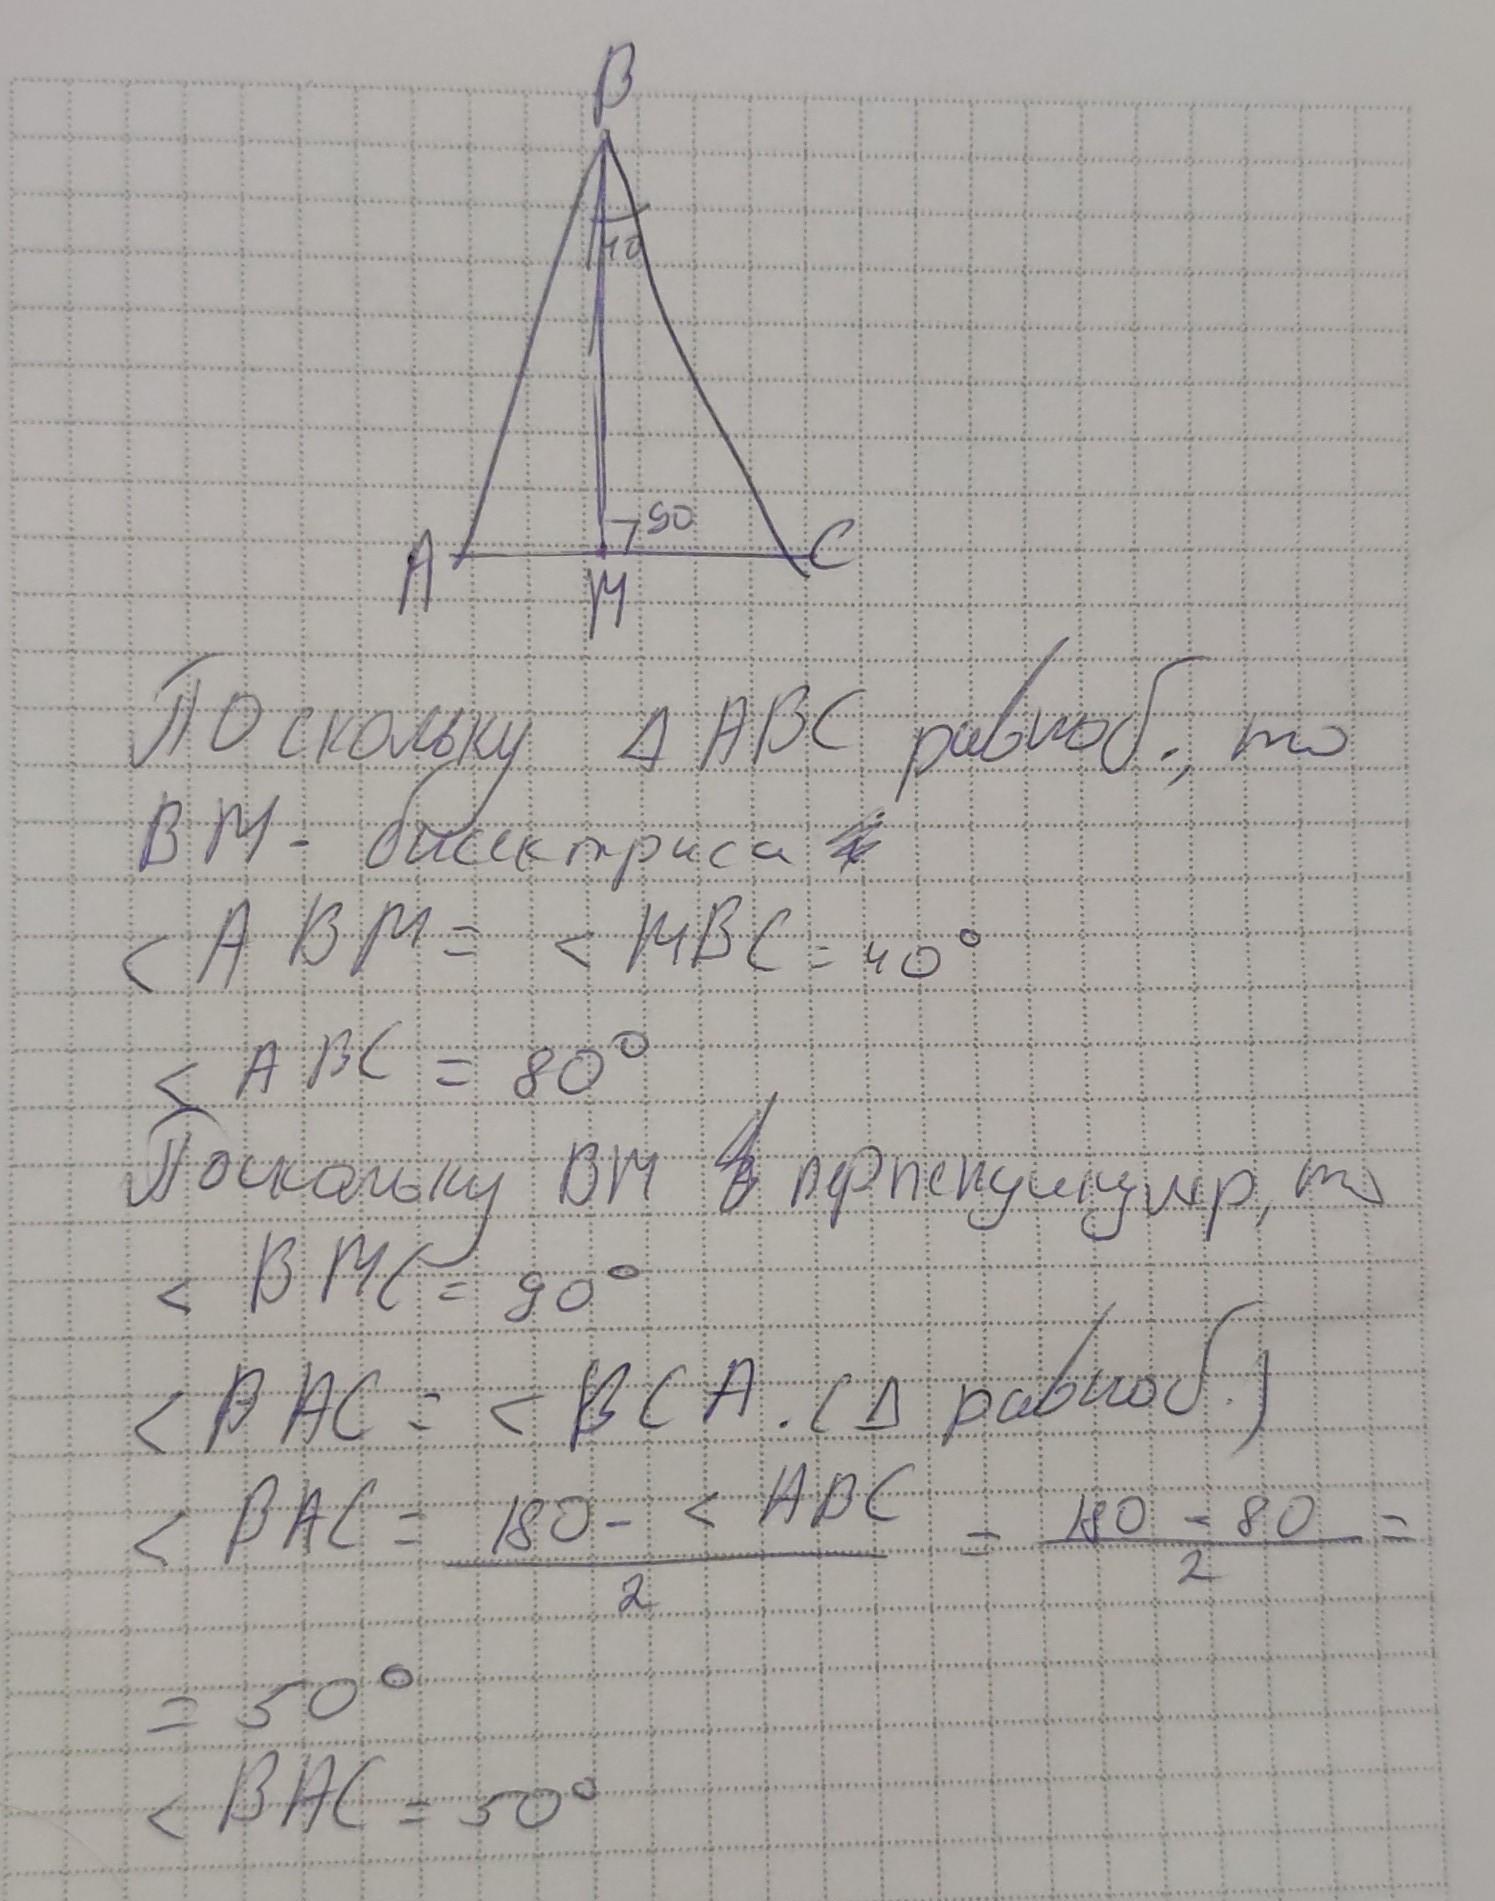 B
40
90
A
M
C
Поскольку Δ ABC равноб., то
BM - бисектриса
< ABM = < MBC = 40°
< ABC = 80°
Поскольку BM перпендикуляр, то
< BMC = 90°
< BAC = < BCA. (Δ равноб.)
< BAC = 180 - < ABC / 2 = 180 - 80 / 2 =
= 50°
< BAC = 50°